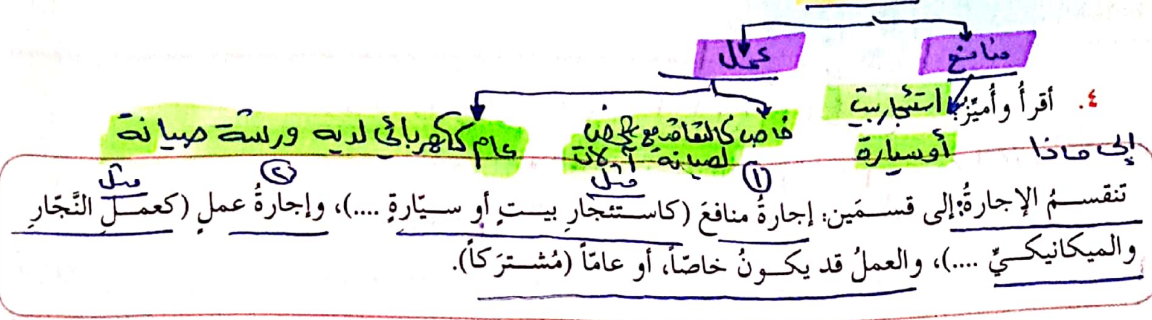 منافع
عمل
٤. أقرأُ وأُميِّزُ:
استئجار بيت
أو سيارة
خاص كالتعاقد مع شخص
لصيانة آلات
عام ككهربائي لديه ورشة صيانة
إلى ماذا
①
مثل
②
مثل
تنقسمُ الإجارةُ: إلى قسمَين: إجارةُ منافعَ (كاستئجارِ بيتٍ أو سيّارةٍ ....)، وإجارةُ عملٍ (كعملِ النَّجّارِ
والميكانيكيِّ ....)، والعملُ قد يكونُ خاصّاً، أو عامّاً (مُشترَكاً).